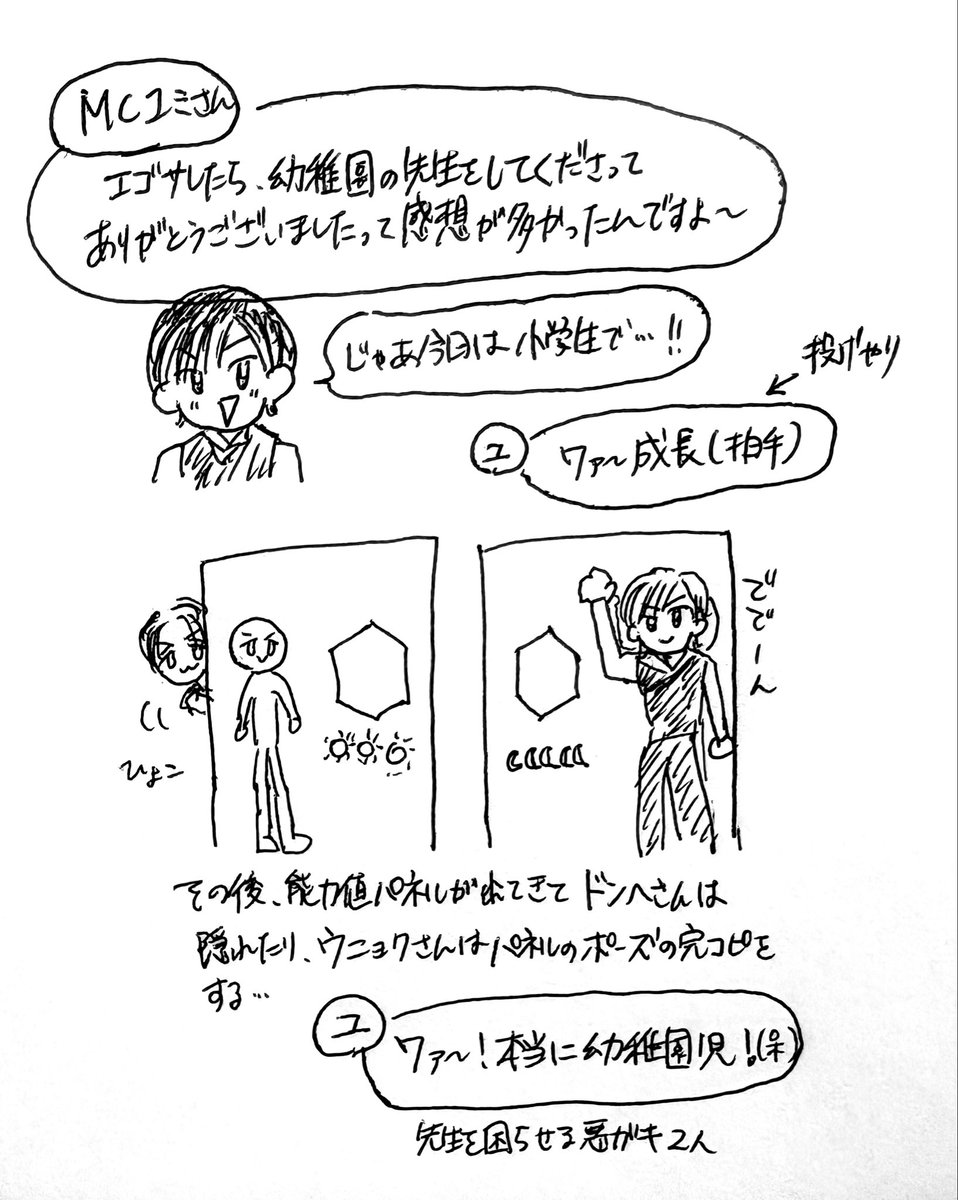 MCユミさん
エゴサしたら、幼稚園の先生をしてくださって
ありがとうございましたって感想が多かったんですよ〜
じゃあ今日は小学生で…!!
投げやり
ユ
ワァ〜成長(拍手)
ででーん
ひょこ
その後、能力値パネルが出てきてドンヘさんは
隠れたり、ウニョクさんはパネルのポーズの完コピを
する…
ユ
ワァ〜!本当に幼稚園児!(呆)
先生を困らせる悪ガキ2人